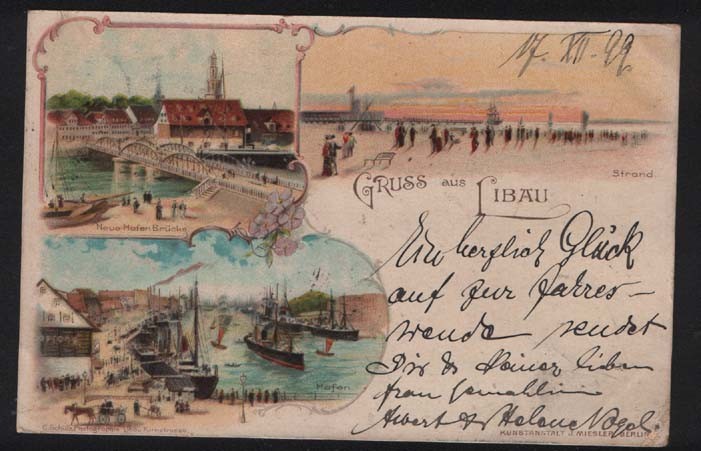 17. XII. 99
Strand.
GRUSS aus LIBAU
Neue Hafen Brücke
Ein herzlich Glück
auf zur Jahres-
wende sendet
Dir & Deiner lieben
Frau Gemahlin
& Helene Nagel.
Hafen
KUNSTANSTALT J. MIESLER, BERLIN